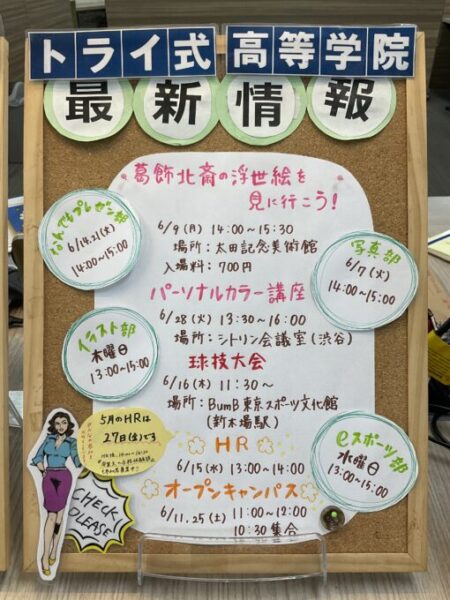 トライ式高等学院
最新情報
葛飾北斎の浮世絵を
見に行こう!
6/9(月) 14:00~15:30
場所:太田記念美術館
入場料:700円
パーソナルカラー講座
6/28(火) 13:30~16:00
場所:シトリン会議室(渋谷)
球技大会
6/16(木) 11:30~
場所:BumB東京スポーツ文化館
(新木場駅)
HR
6/15(水) 13:00~14:00
オープンキャンパス
6/11,25(土) 11:00~12:00
10:30集合
なんでもプレゼン部
6/14,21(火)
14:00~15:00
イラスト部
木曜日
13:00~15:00
写真部
6/7(火)
14:00~15:00
eスポーツ部
水曜日
13:00~15:00
5月のHRは
27日(金)です
CHECK
PLEASE